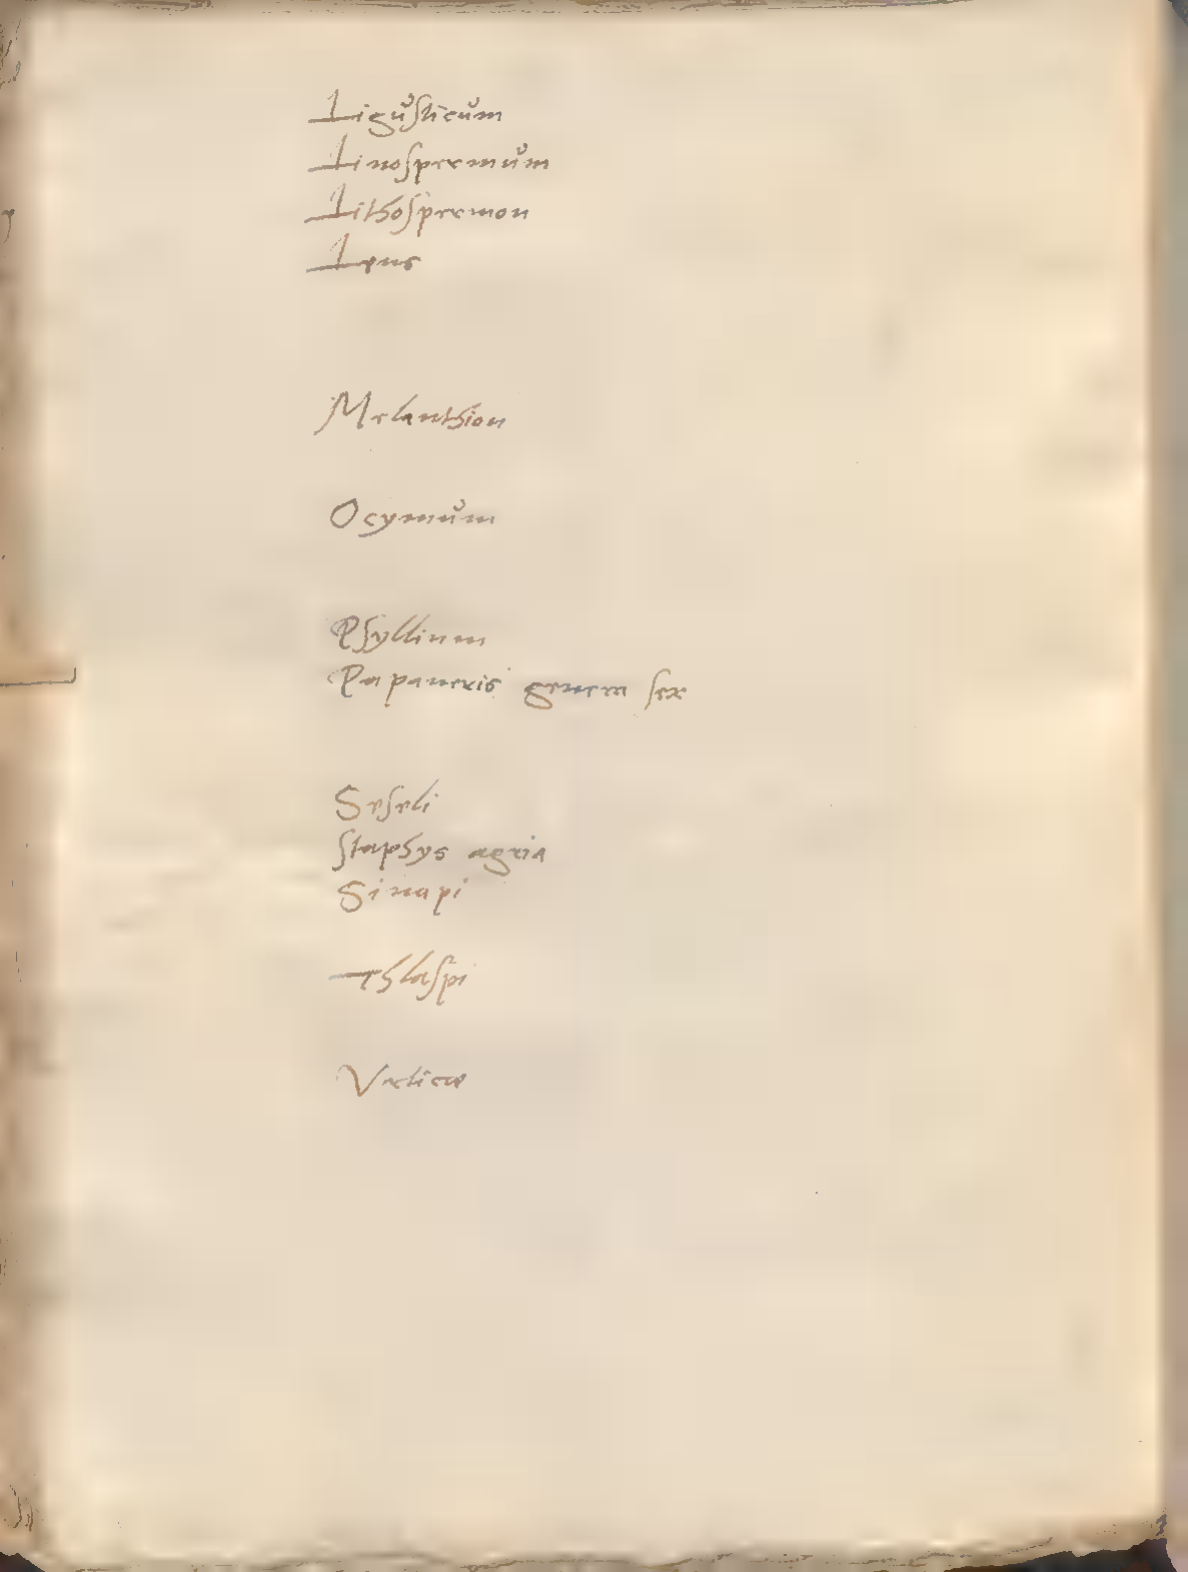 Ligusticum
Linospermum
Lithospermon
Melanthion
Ocymum
Psyllium
Papaueris genera sex
Seseli
staphys agria
Sinapi
Thlaspi
Vrticæ